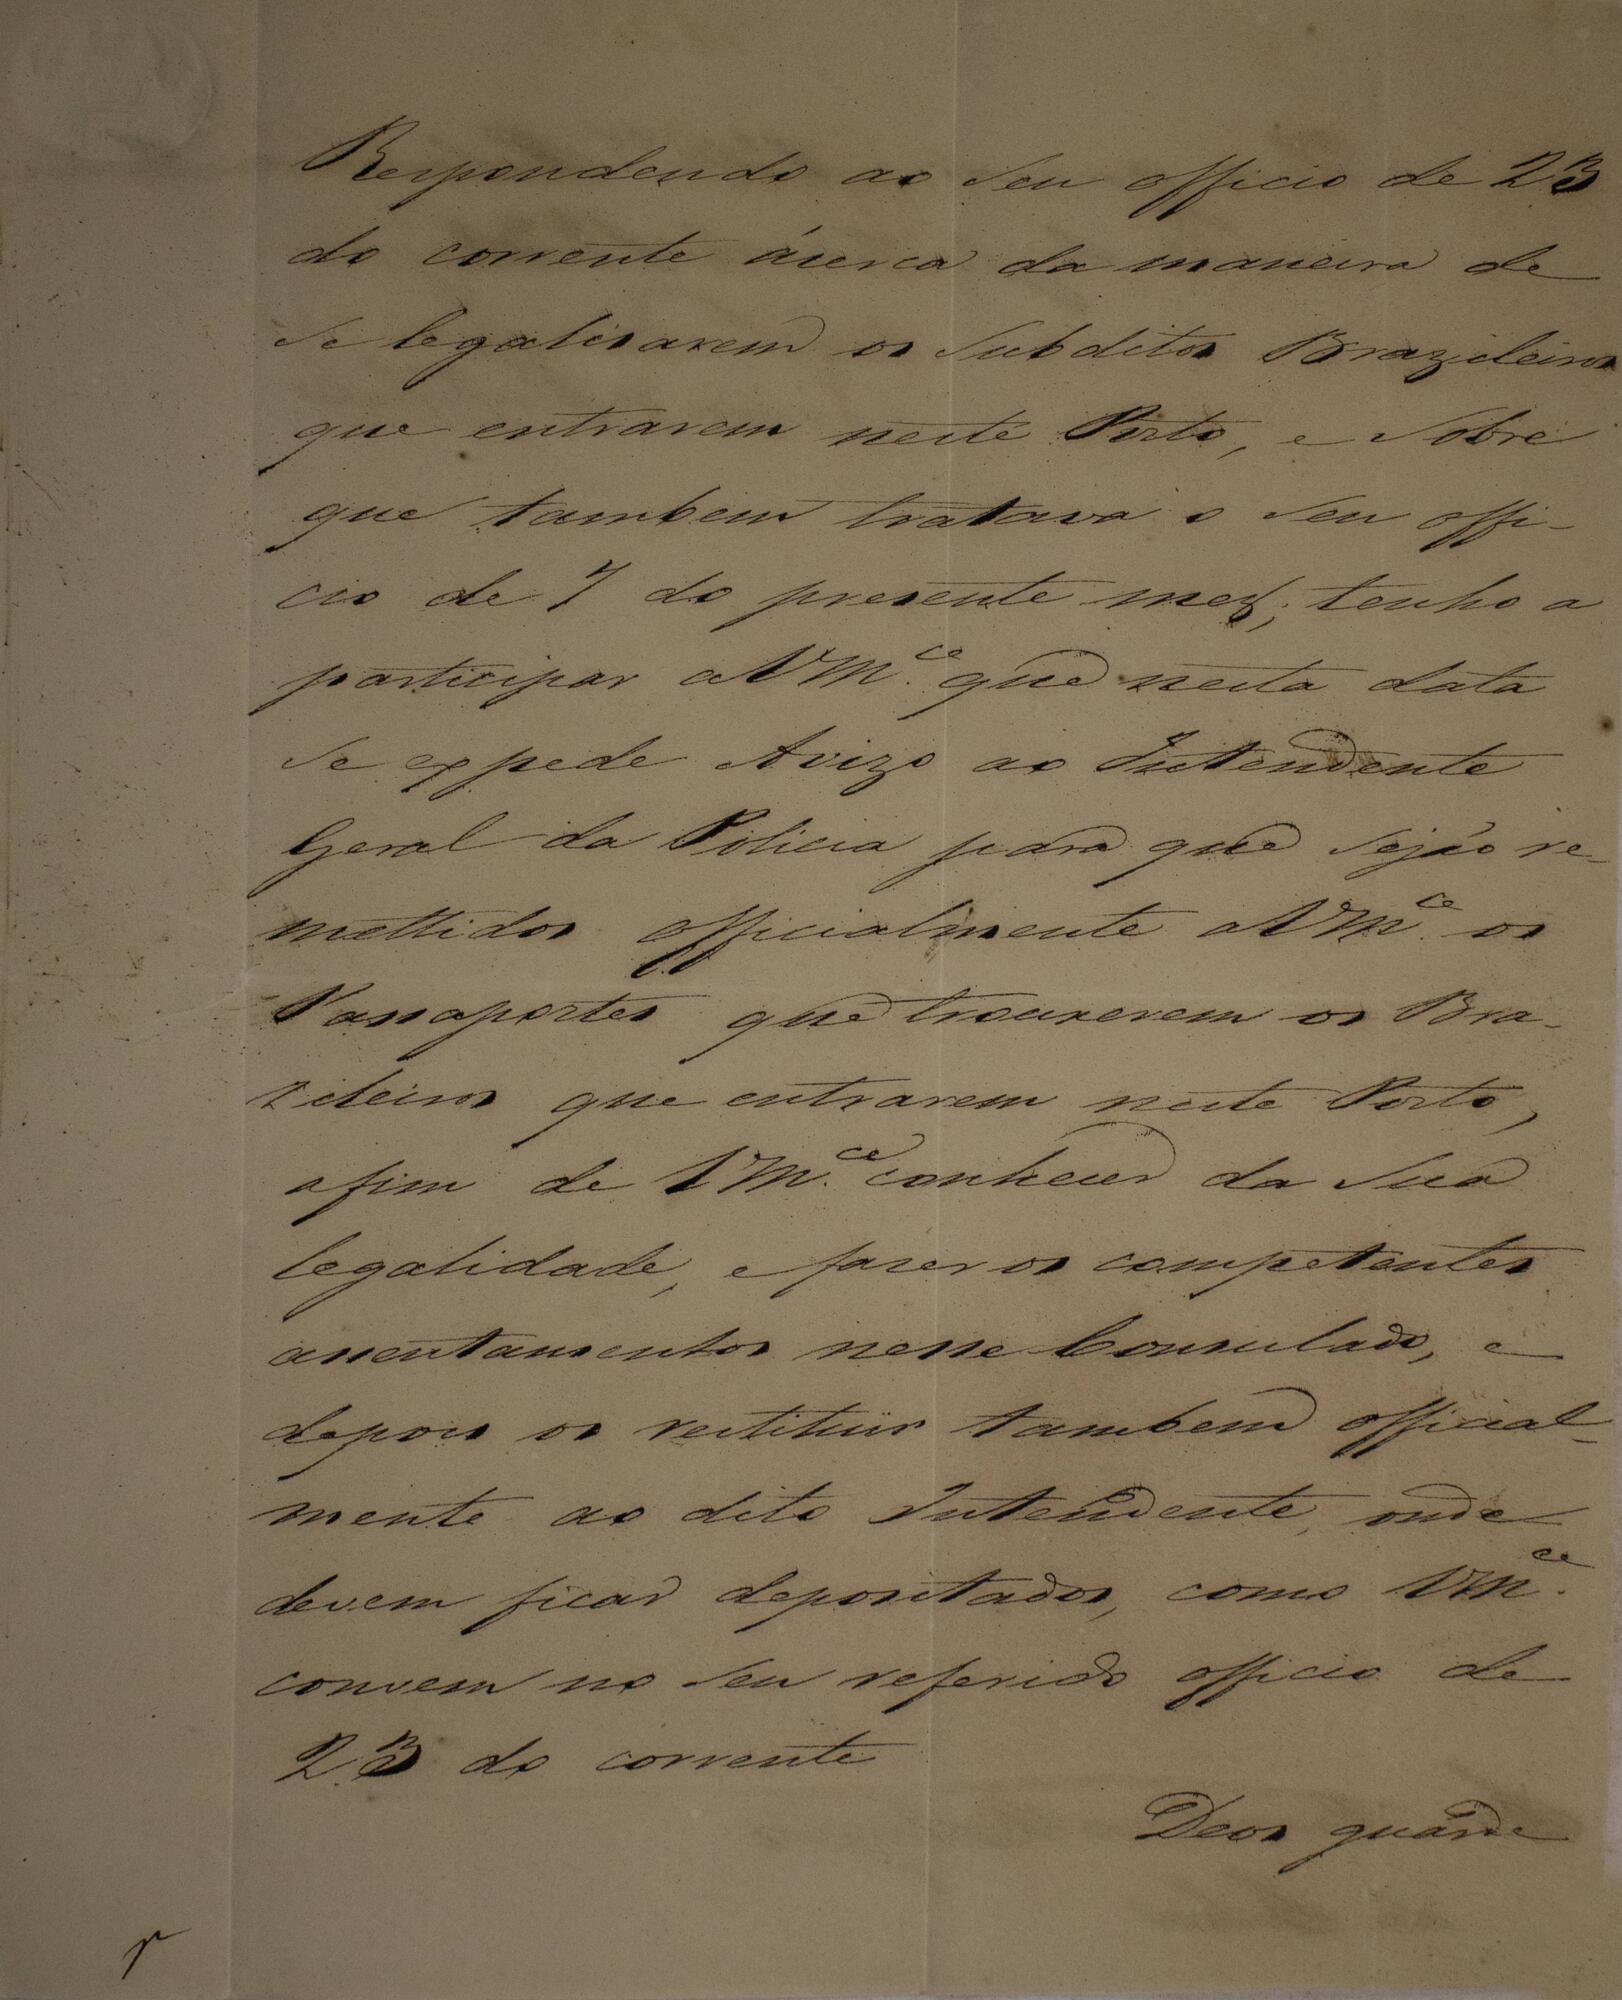 Respondendo ao seu officio de 23
do corrente ácerca da maneira de
se legalisarem os subditos Brazileiros
que entrarem neste Porto, e sobre
que tambem tratava o seu offi-
cio de 7 do presente mez; tenho a
participar a VM.ce que nesta data
se expede Avizo ao Intendente
Geral da Policia para que sejão re-
mettidos officialmente a VM.ce os
Passaportes que trouxerem os Bra-
zileiros que entrarem neste Porto,
afim de VM.ce conhecer da sua
legalidade, e fazer os competentes
assentamentos nesse Consulado, e
depois os restituir tambem official-
mente ao dito Intendente, onde
devem ficar depositados, como VM.ce
convem no seu referido officio de
23 do corrente
Deos guarde